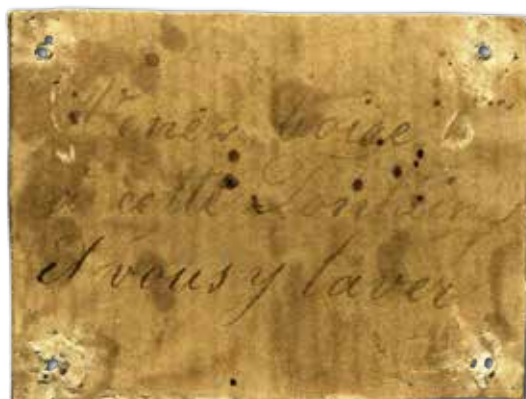 Venés boire
à cette Fontaine
et vous y laver